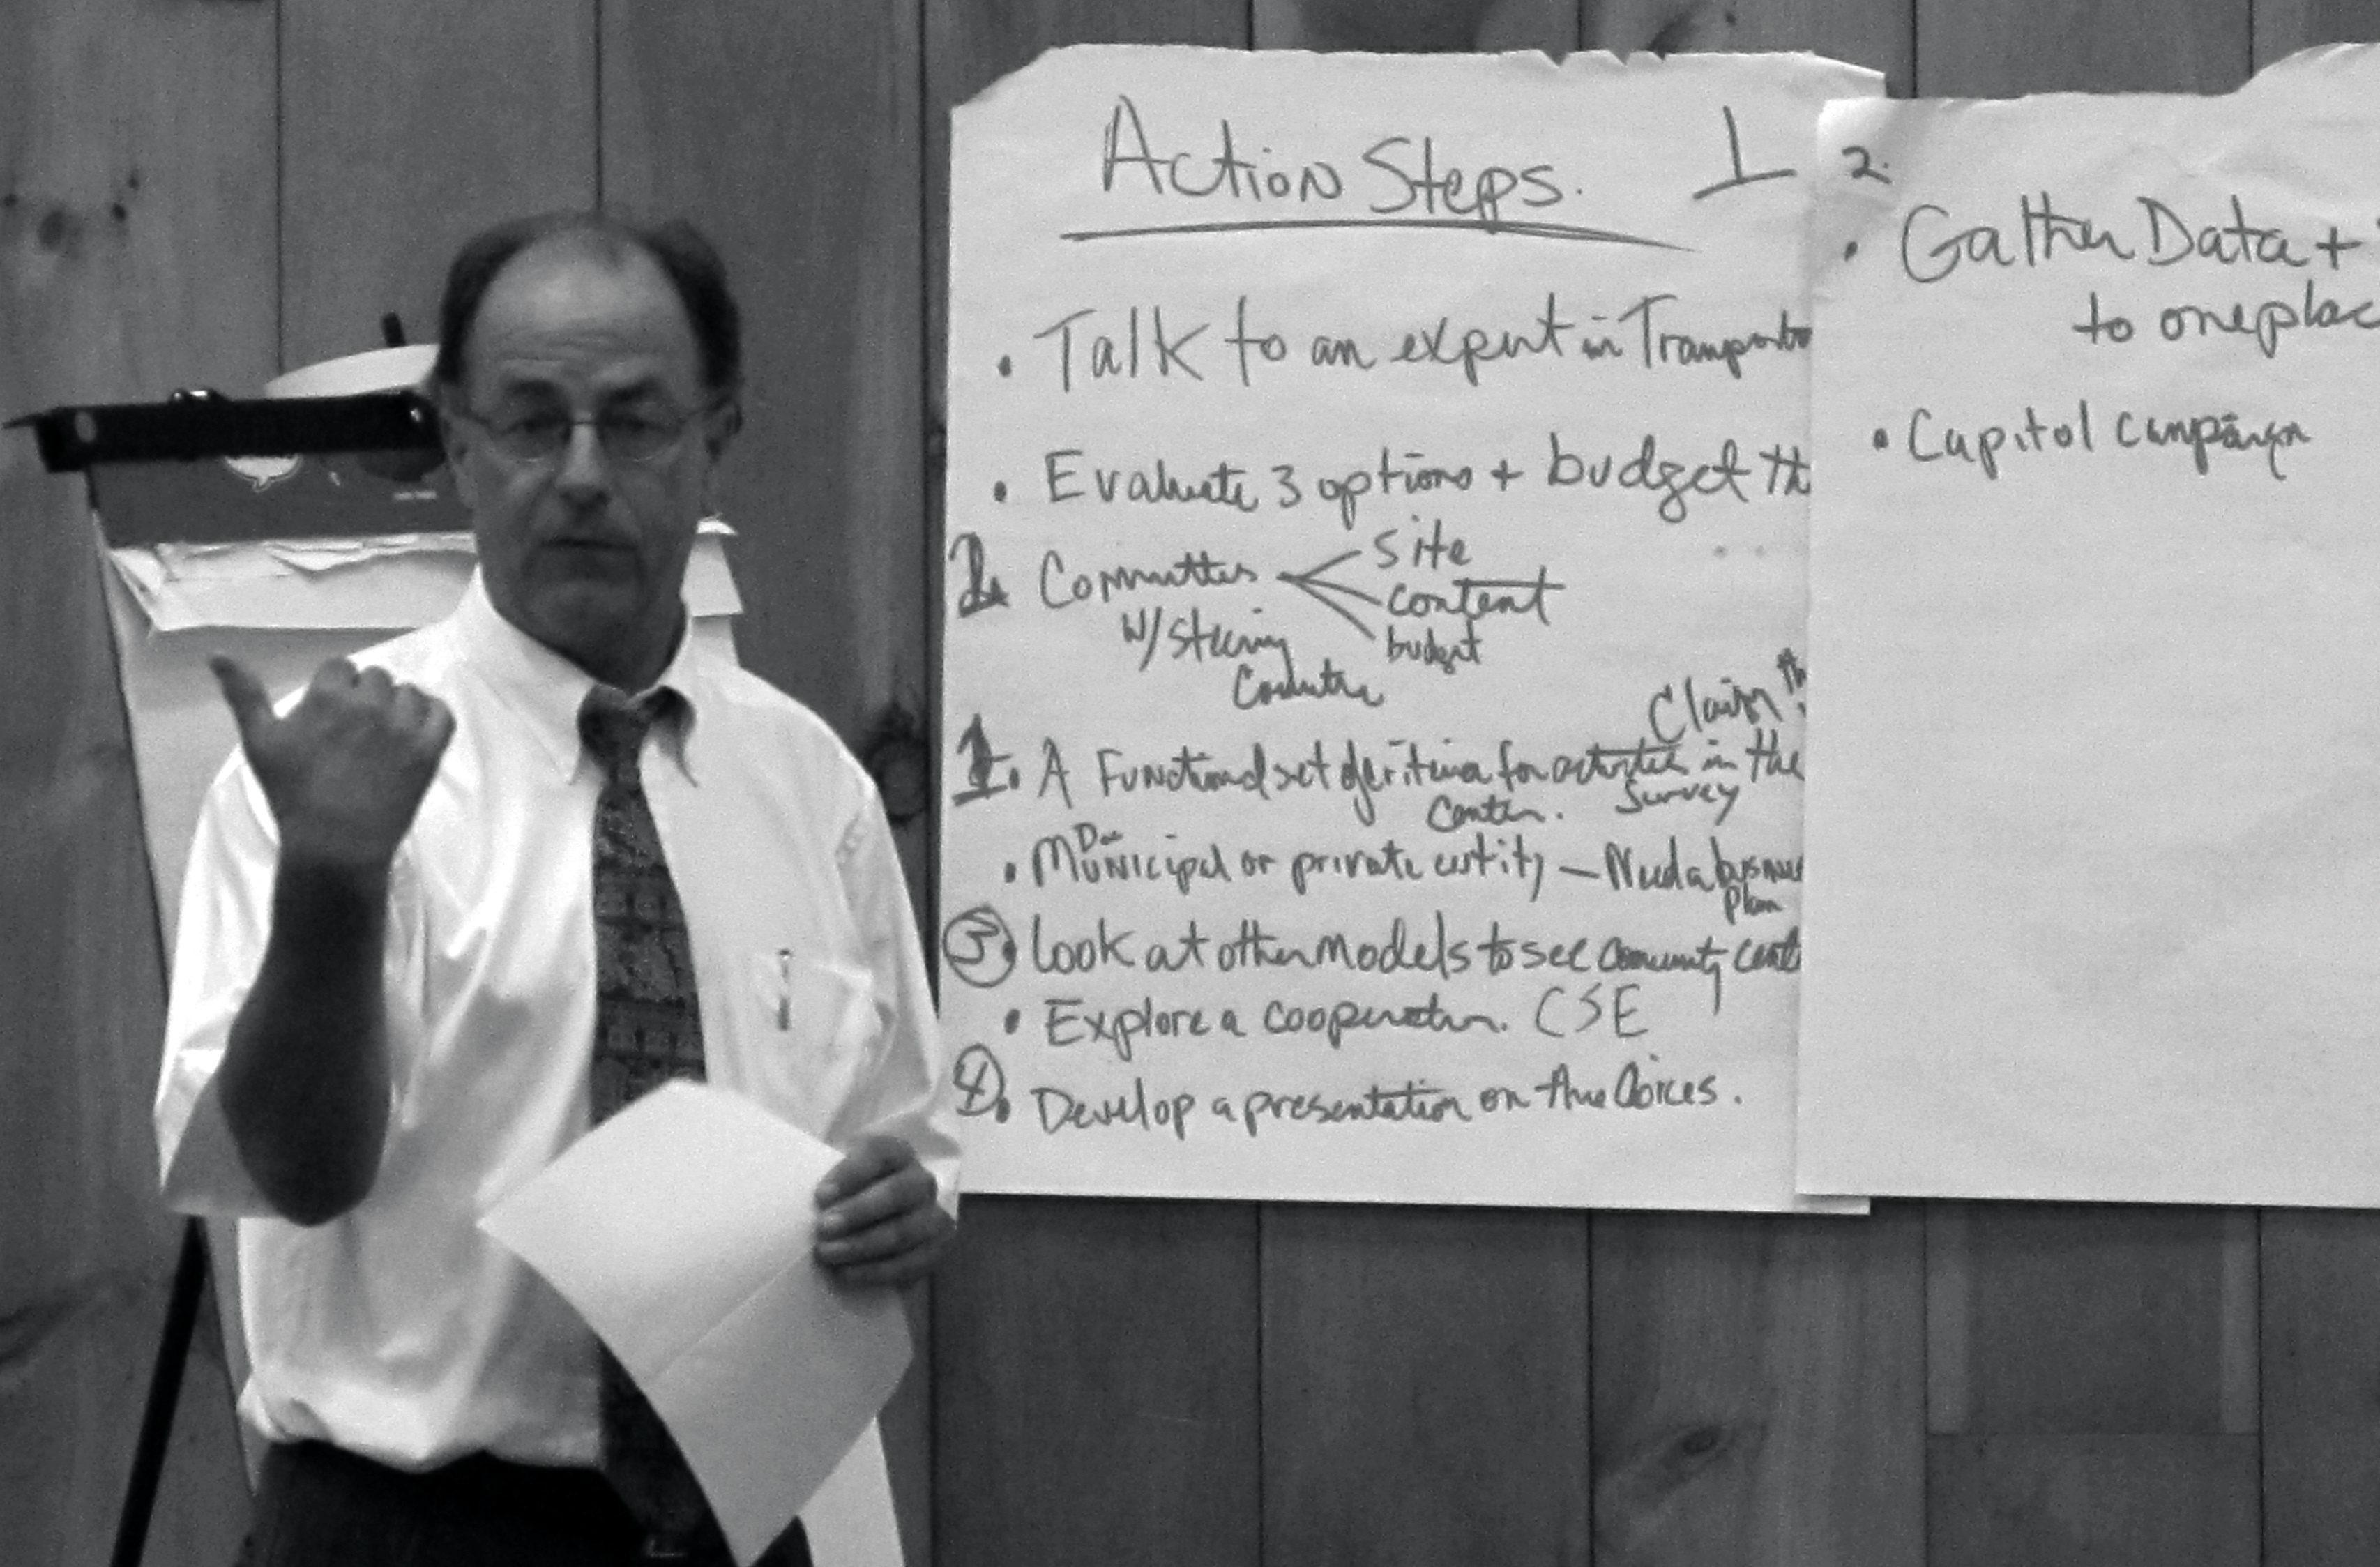 Action Steps. 1
• Talk to an expert in Transporta
• Evaluate 3 options + budget th
2. Committees
site
content
budget
w/ steering
Committee
Claim th
1. A Functional set of criteria for activities in the
Center. Survey
• Municipal or private entity — Need a business
Plan
3. Look at other models to see community cent
• Explore a cooperation. CSE
4. Develop a presentation on the Choices.
2.
• Gather Data +
to one plac
• Capitol campaign